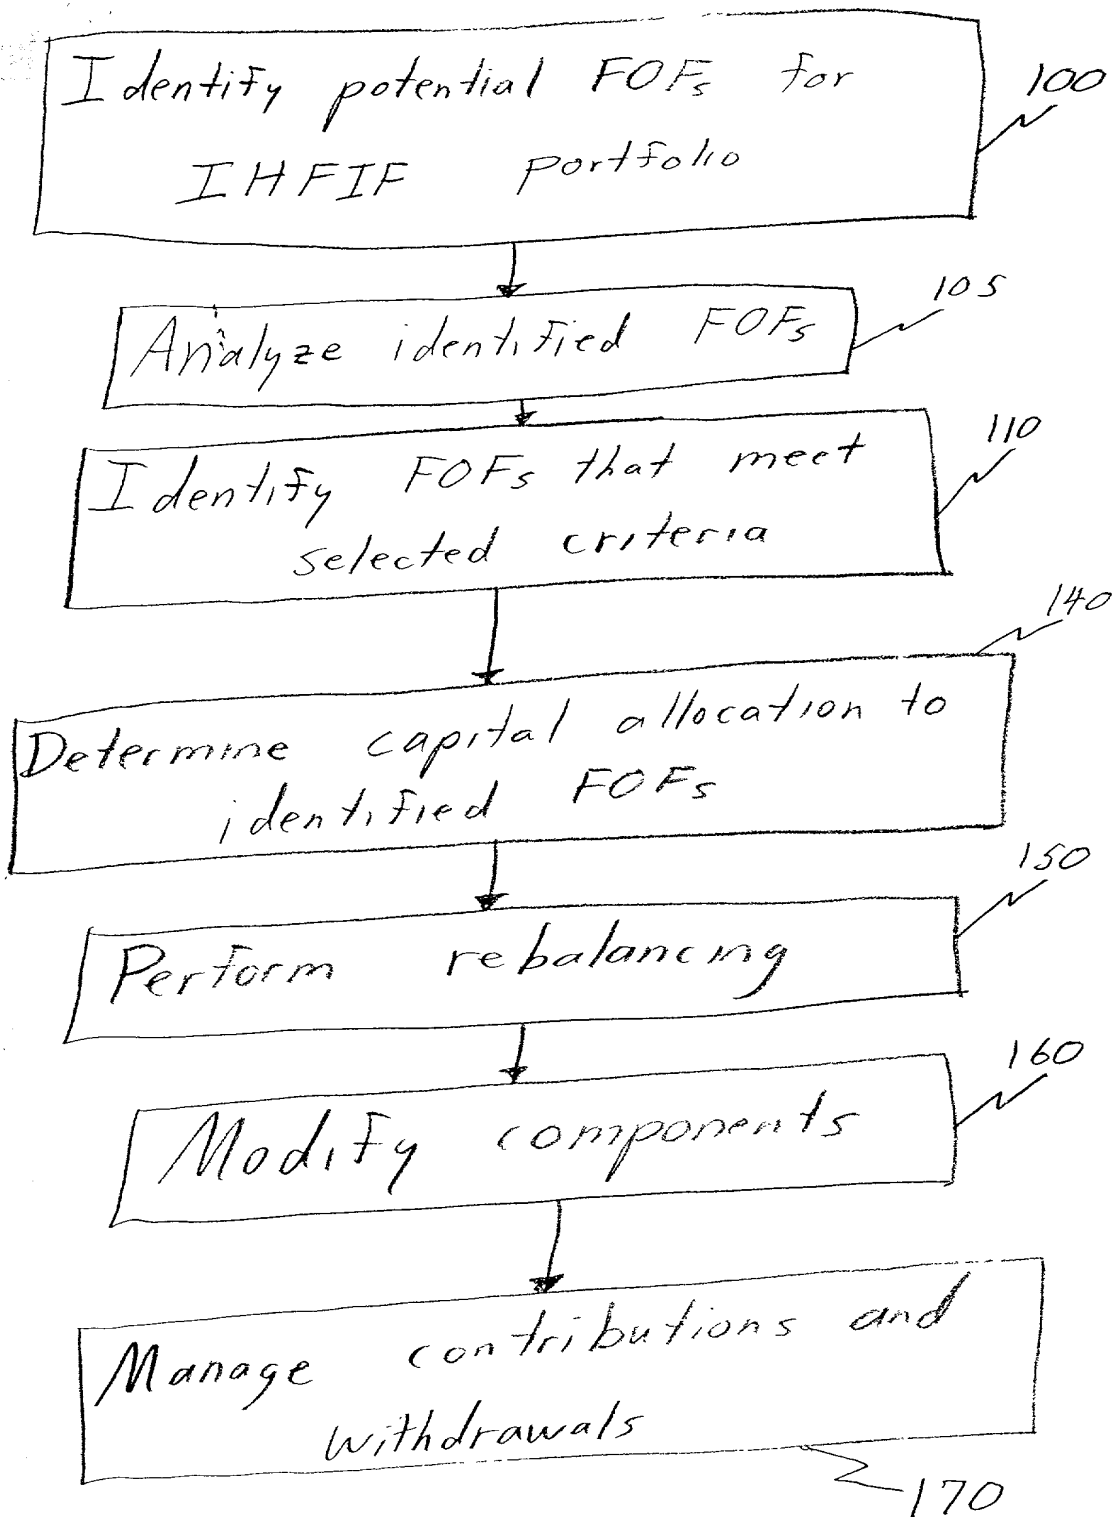 Identify potential FOFs for
IHFIF portfolio
100
Analyze identified FOFs
105
Identify FOFs that meet
selected criteria
110
Determine capital allocation to
identified FOFs
140
Perform rebalancing
150
Modify components
160
Manage contributions and
withdrawals
170